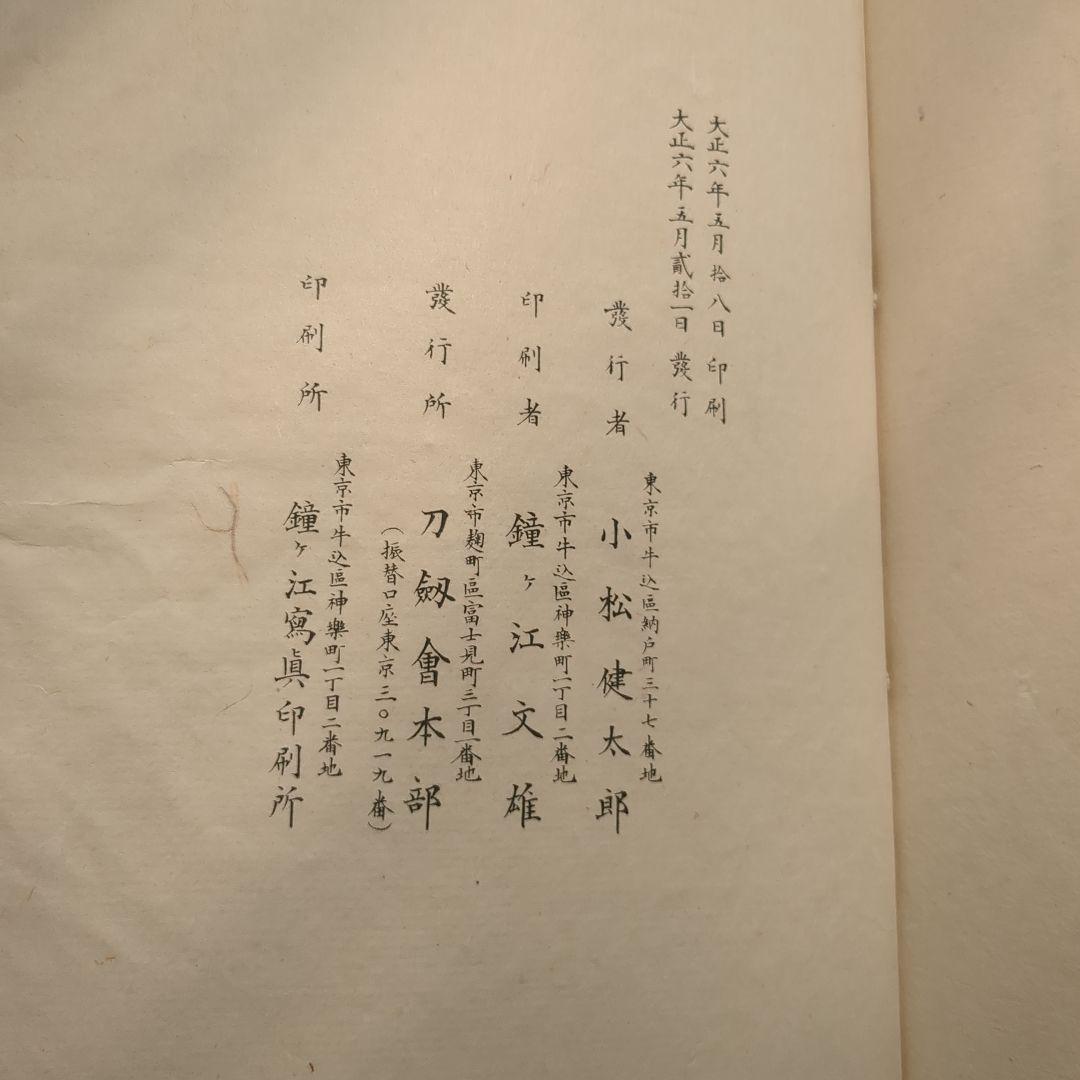 大正六年五月拾八日印刷
大正六年五月貳拾一日發行
東京市牛込區納戸町三十七番地
發行者 小松健太郎
東京市牛込區神樂町一丁目二番地
印刷者 鐘ヶ江文雄
東京市麹町區富士見町三丁目一番地
發行所 刀劔會本部
(振替口座東京三〇九一九番)
東京市牛込區神樂町一丁目二番地
印刷所 鐘ヶ江寫眞印刷所